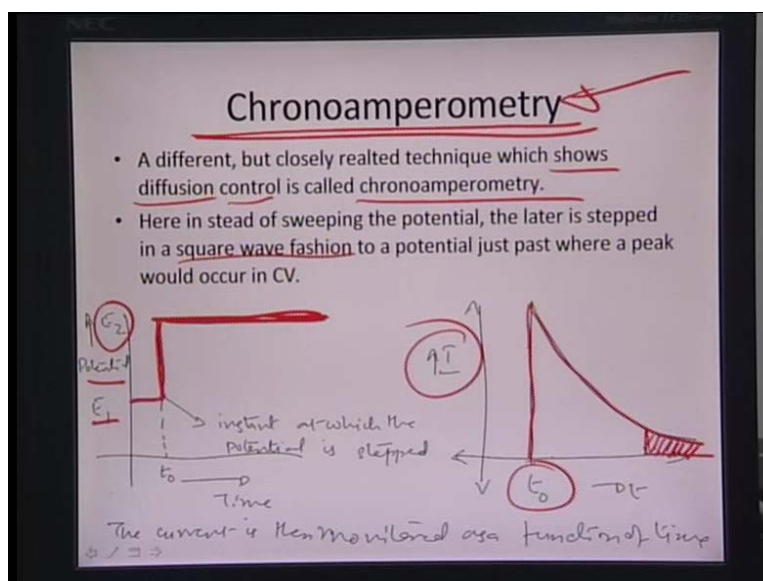 NEC
Chronoamperometry
• A different, but closely realted technique which shows
diffusion control is called chronoamperometry.
• Here in stead of sweeping the potential, the later is stepped
in a square wave fashion to a potential just past where a peak
would occur in CV.
E2
Potential
E1
instant at which the
potential is stepped
t0
Time
I
t0
t
The current is then monitored as a function of time